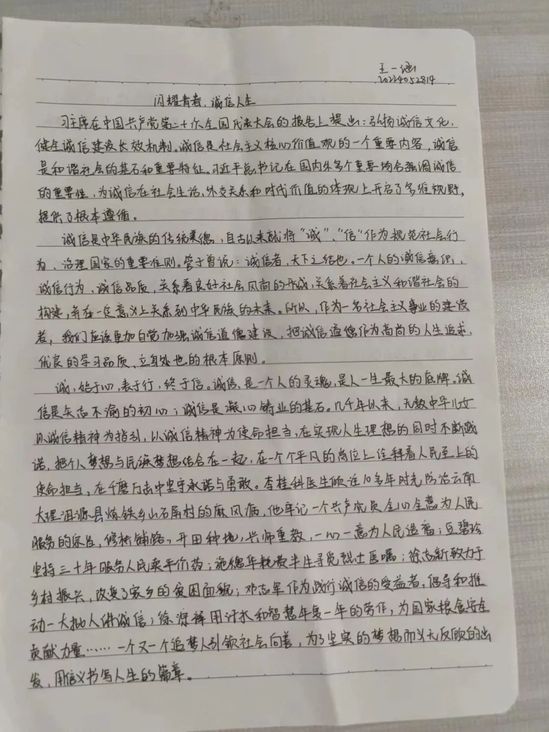 王一涵
20234052814
闪耀青春，诚信人生
习主席在中国共产党第二十次全国代表大会的报告上提出：弘扬诚信文化，
健全诚信建设长效机制。诚信是社会主义核心价值观的一个重要内容，诚信
是和谐社会的基石和重要特征。习近平总书记在国内外多个重要场合强调诚信
的重要性，为诚信在社会生活、外交关系和时代价值的体现上开启了多维视野，
提供了根本遵循。
诚信是中华民族的传统美德，自古以来就将“诚”、“信”作为规范社会行
为、治理国家的重要准则。管子曾说：诚信者，天下之结也。一个人的诚信
诚信行为、诚信品质，关系着良好社会风尚的形成，关系着社会主义和谐社会的
构建，并在一定意义上关系到中华民族的未来。所以，作为一名社会主义事业的建设
者，我们应该更加自觉加强诚信道德建设，把诚信道德作为高尚的人生追求、
优良的学习品质、立身处世的根本原则。
诚，始于心，表于行，终于信。诚信，是一个人的灵魂，是人一生最大的底牌。诚
信是矢志不渝的初心；诚信是凝心铸业的基石。几千年以来，无数中华儿女
以诚信精神为指引，以诚信精神为使命担当，在实现人生理想的同时不断践
诺，把个人梦想与民族梦想结合在一起，在一个个平凡的岗位上诠释着人民至上的
使命担当，在千磨万击中坚守承诺与勇敢。李桂科医生倾近40多年时光防治云南
大理洱源县炼铁乡山石屏村的麻风病，他牢记一个共产党员全心全意为人民
服务的宗旨，修桥铺路，开田种地，兴师重教，一心一意为人民造福；豆碧玲
坚持三十年服务人民卖平价药；施德华耗费半生寻觅烈士医嘱；徐志新致力于
乡村振兴，改变了家乡的贫困面貌；邓志军作为践行诚信的受益者，倡导和推
动一大批人讲诚信；徐淙祥用汗水和智慧年复一年的劳作，为国家粮食安全
贡献力量……一个又一个追梦人引领社会向善，为了坚实的梦想而义无反顾的出
发，用信义书写人生的篇章。